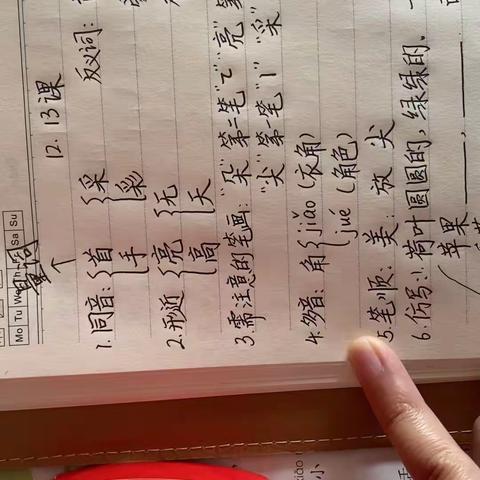 Mo Tu We Th Fr Sa Su
12. 13课
1. 同音: {首 手 {采 彩 反义词:
2. 形近 {亮 高 {无 天
3. 需注意的笔画: "朵"第二笔"乙" "亮"
"尖"第一笔"丨" "采"
4. 多音: 角{jiǎo (衣角)
jué (角色)
5. 笔顺: 美: 放 尖
6. 仿写: 1. 荷叶圆圆的, 绿绿的。
苹果